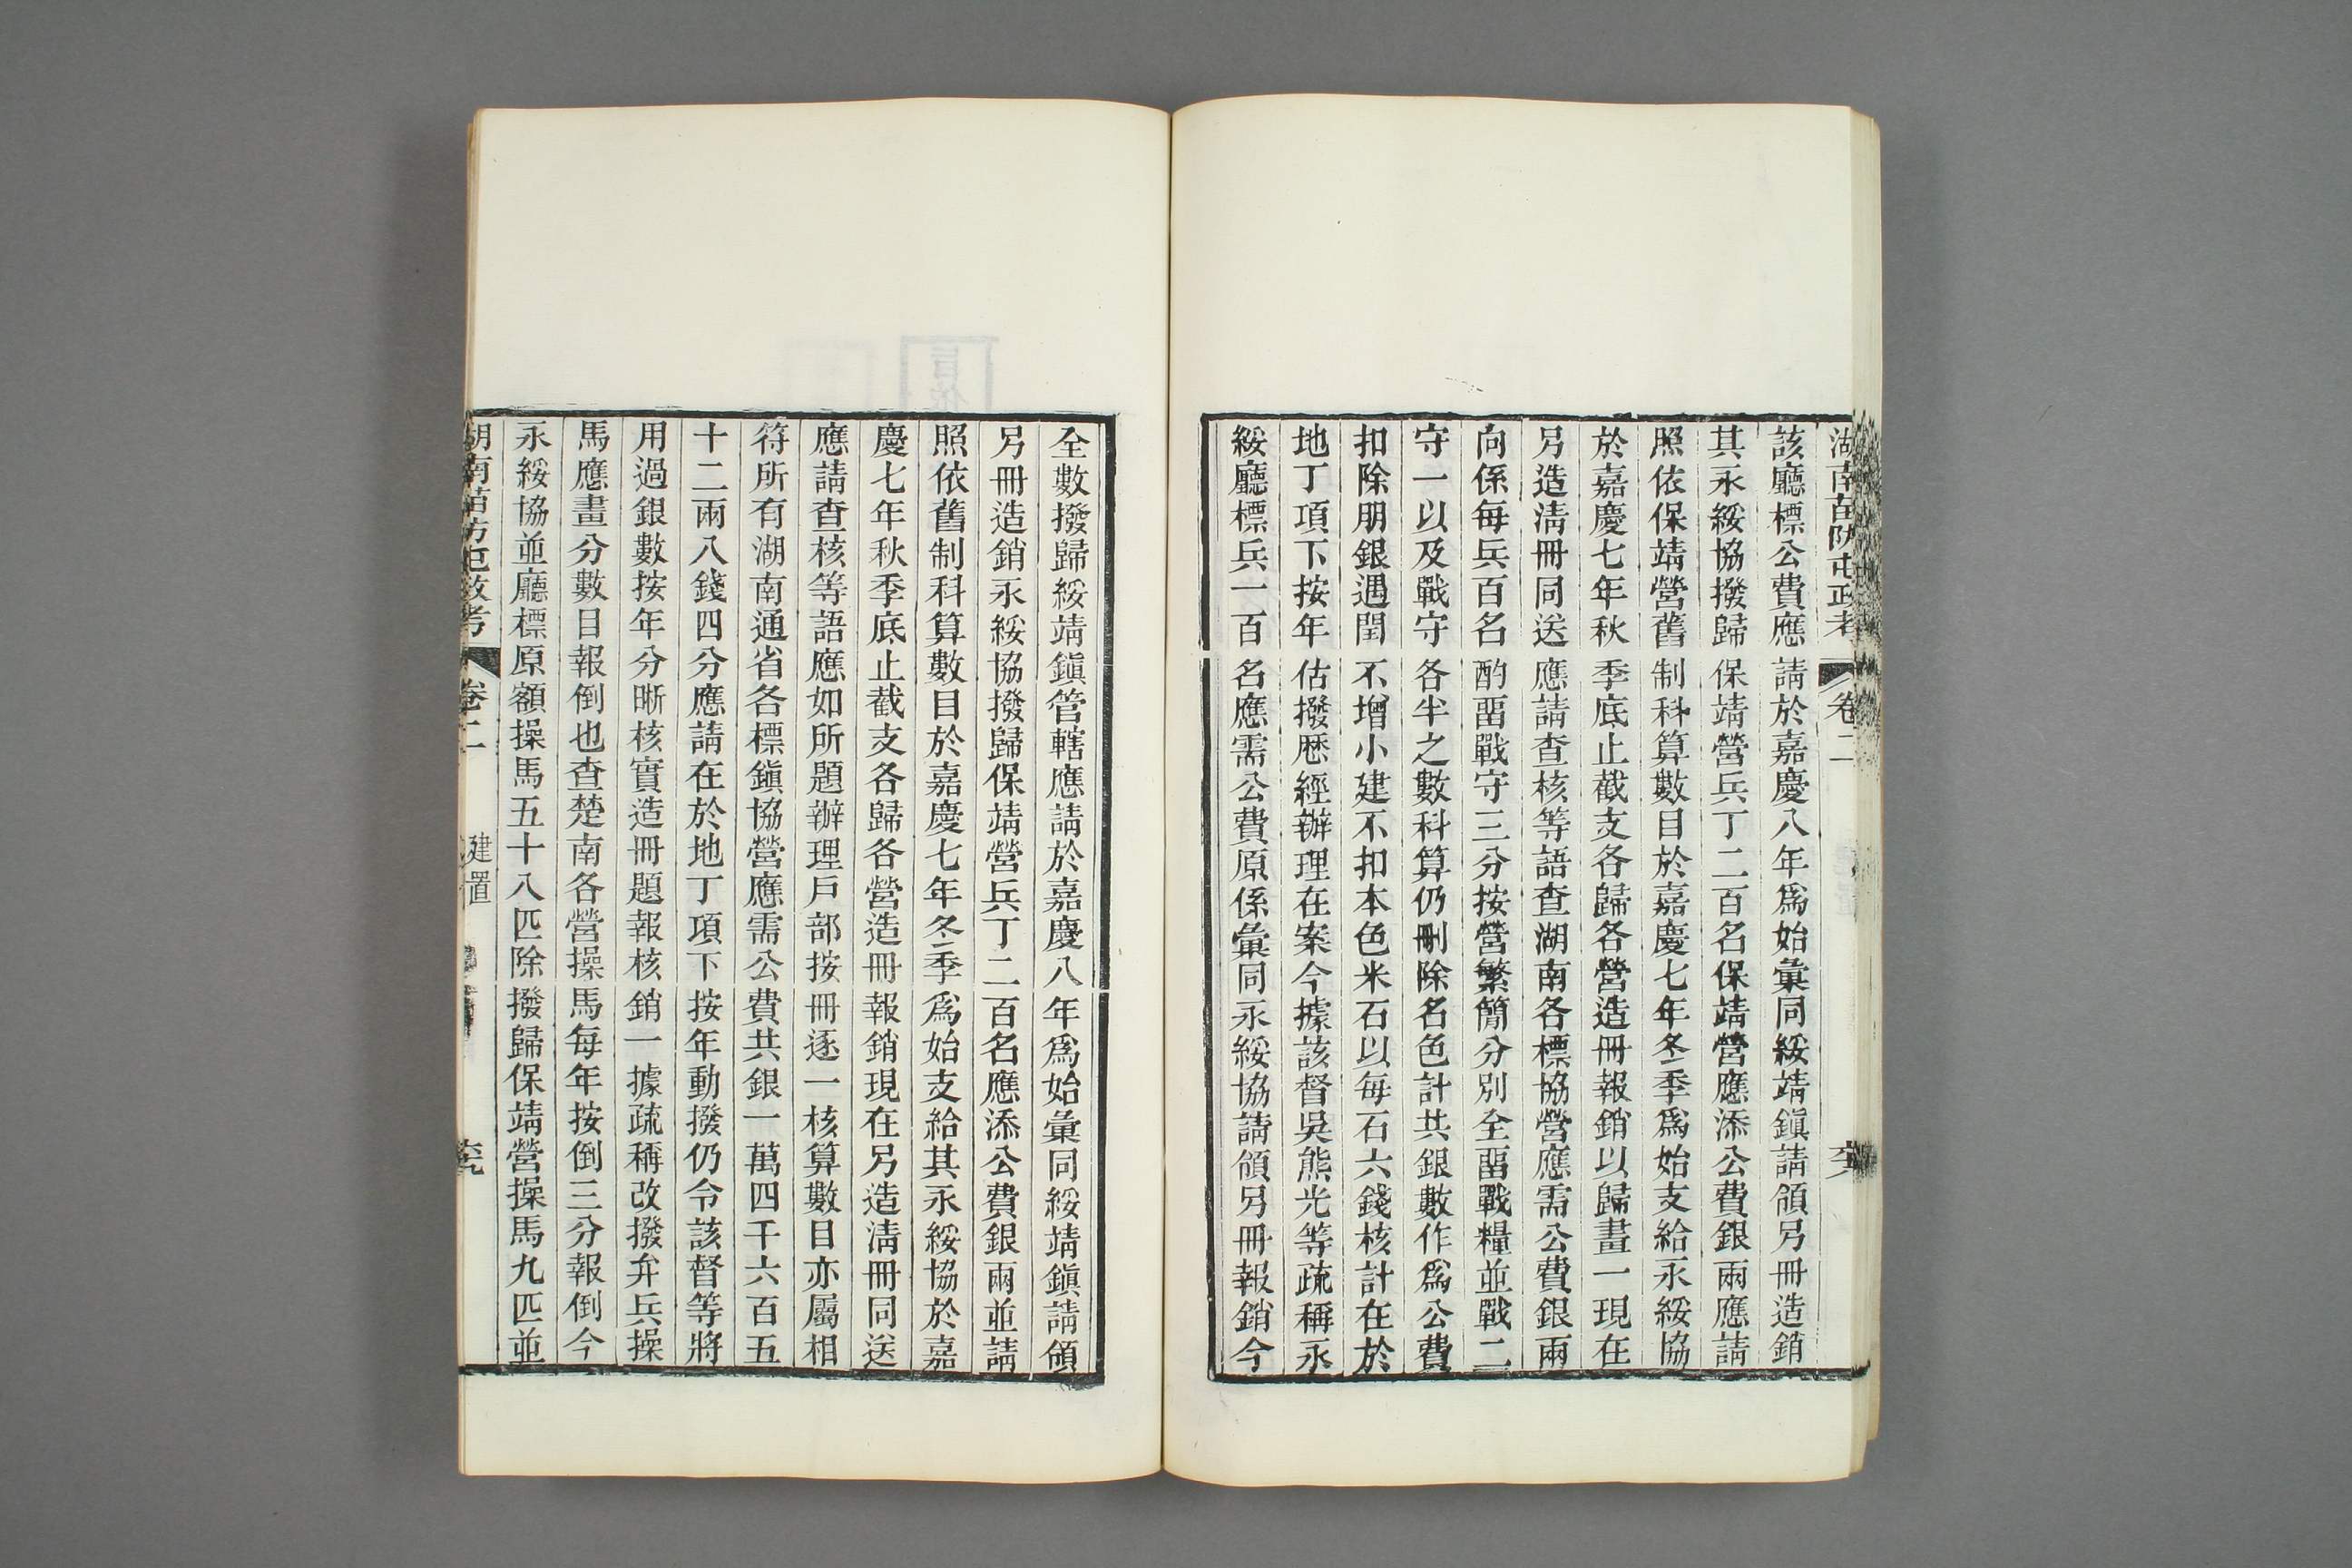 湖南苗防屯政考 卷二
該廳標公費應請於嘉慶八年爲始彙同綏靖鎭請領另冊造銷
其永綏協撥歸保靖營兵丁二百名保靖營應添公費銀兩應請
照依保靖營舊制科算數目於嘉慶七年冬季爲始支給永綏協
於嘉慶七年秋季底止截支各歸各營造冊報銷以歸畫一現在
另造清冊同送應請查核等語查湖南各標協營應需公費銀兩
向係每兵百名酌畱戰守三分按營繁簡分別全畱戰糧並戰二
守一以及戰守各半之數科算仍刪除名色計共銀數作爲公費
扣除朋銀遇閏不增小建不扣本色米石以每石六錢核計在於
地丁項下按年估撥歷經辦理在案今據該督吳熊光等疏稱永
綏廳標兵一百名應需公費原係彙同永綏協請領另冊報銷今
全數撥歸綏靖鎭管轄應請於嘉慶八年爲始彙同綏靖鎭請領
另冊造銷永綏協撥歸保靖營兵丁二百名應添公費銀兩並請
照依舊制科算數目於嘉慶七年冬季爲始支給其永綏協於嘉
慶七年秋季底止截支各歸各營造冊報銷現在另造清冊同送
應請查核等語應如所題辦理戶部按冊逐一核算數目亦屬相
符所有湖南通省各標鎭協營應需公費共銀一萬四千六百五
十二兩八錢四分應請在於地丁項下按年動撥仍令該督等將
用過銀數按年分晰核實造冊題報核銷一據疏稱改撥弁兵操
馬應畫分數目報倒也查楚南各營操馬每年按倒三分報倒今
永綏協並廳標原額操馬五十八匹除撥歸保靖營操馬九匹並
湖南苗防屯政考 卷二 建置